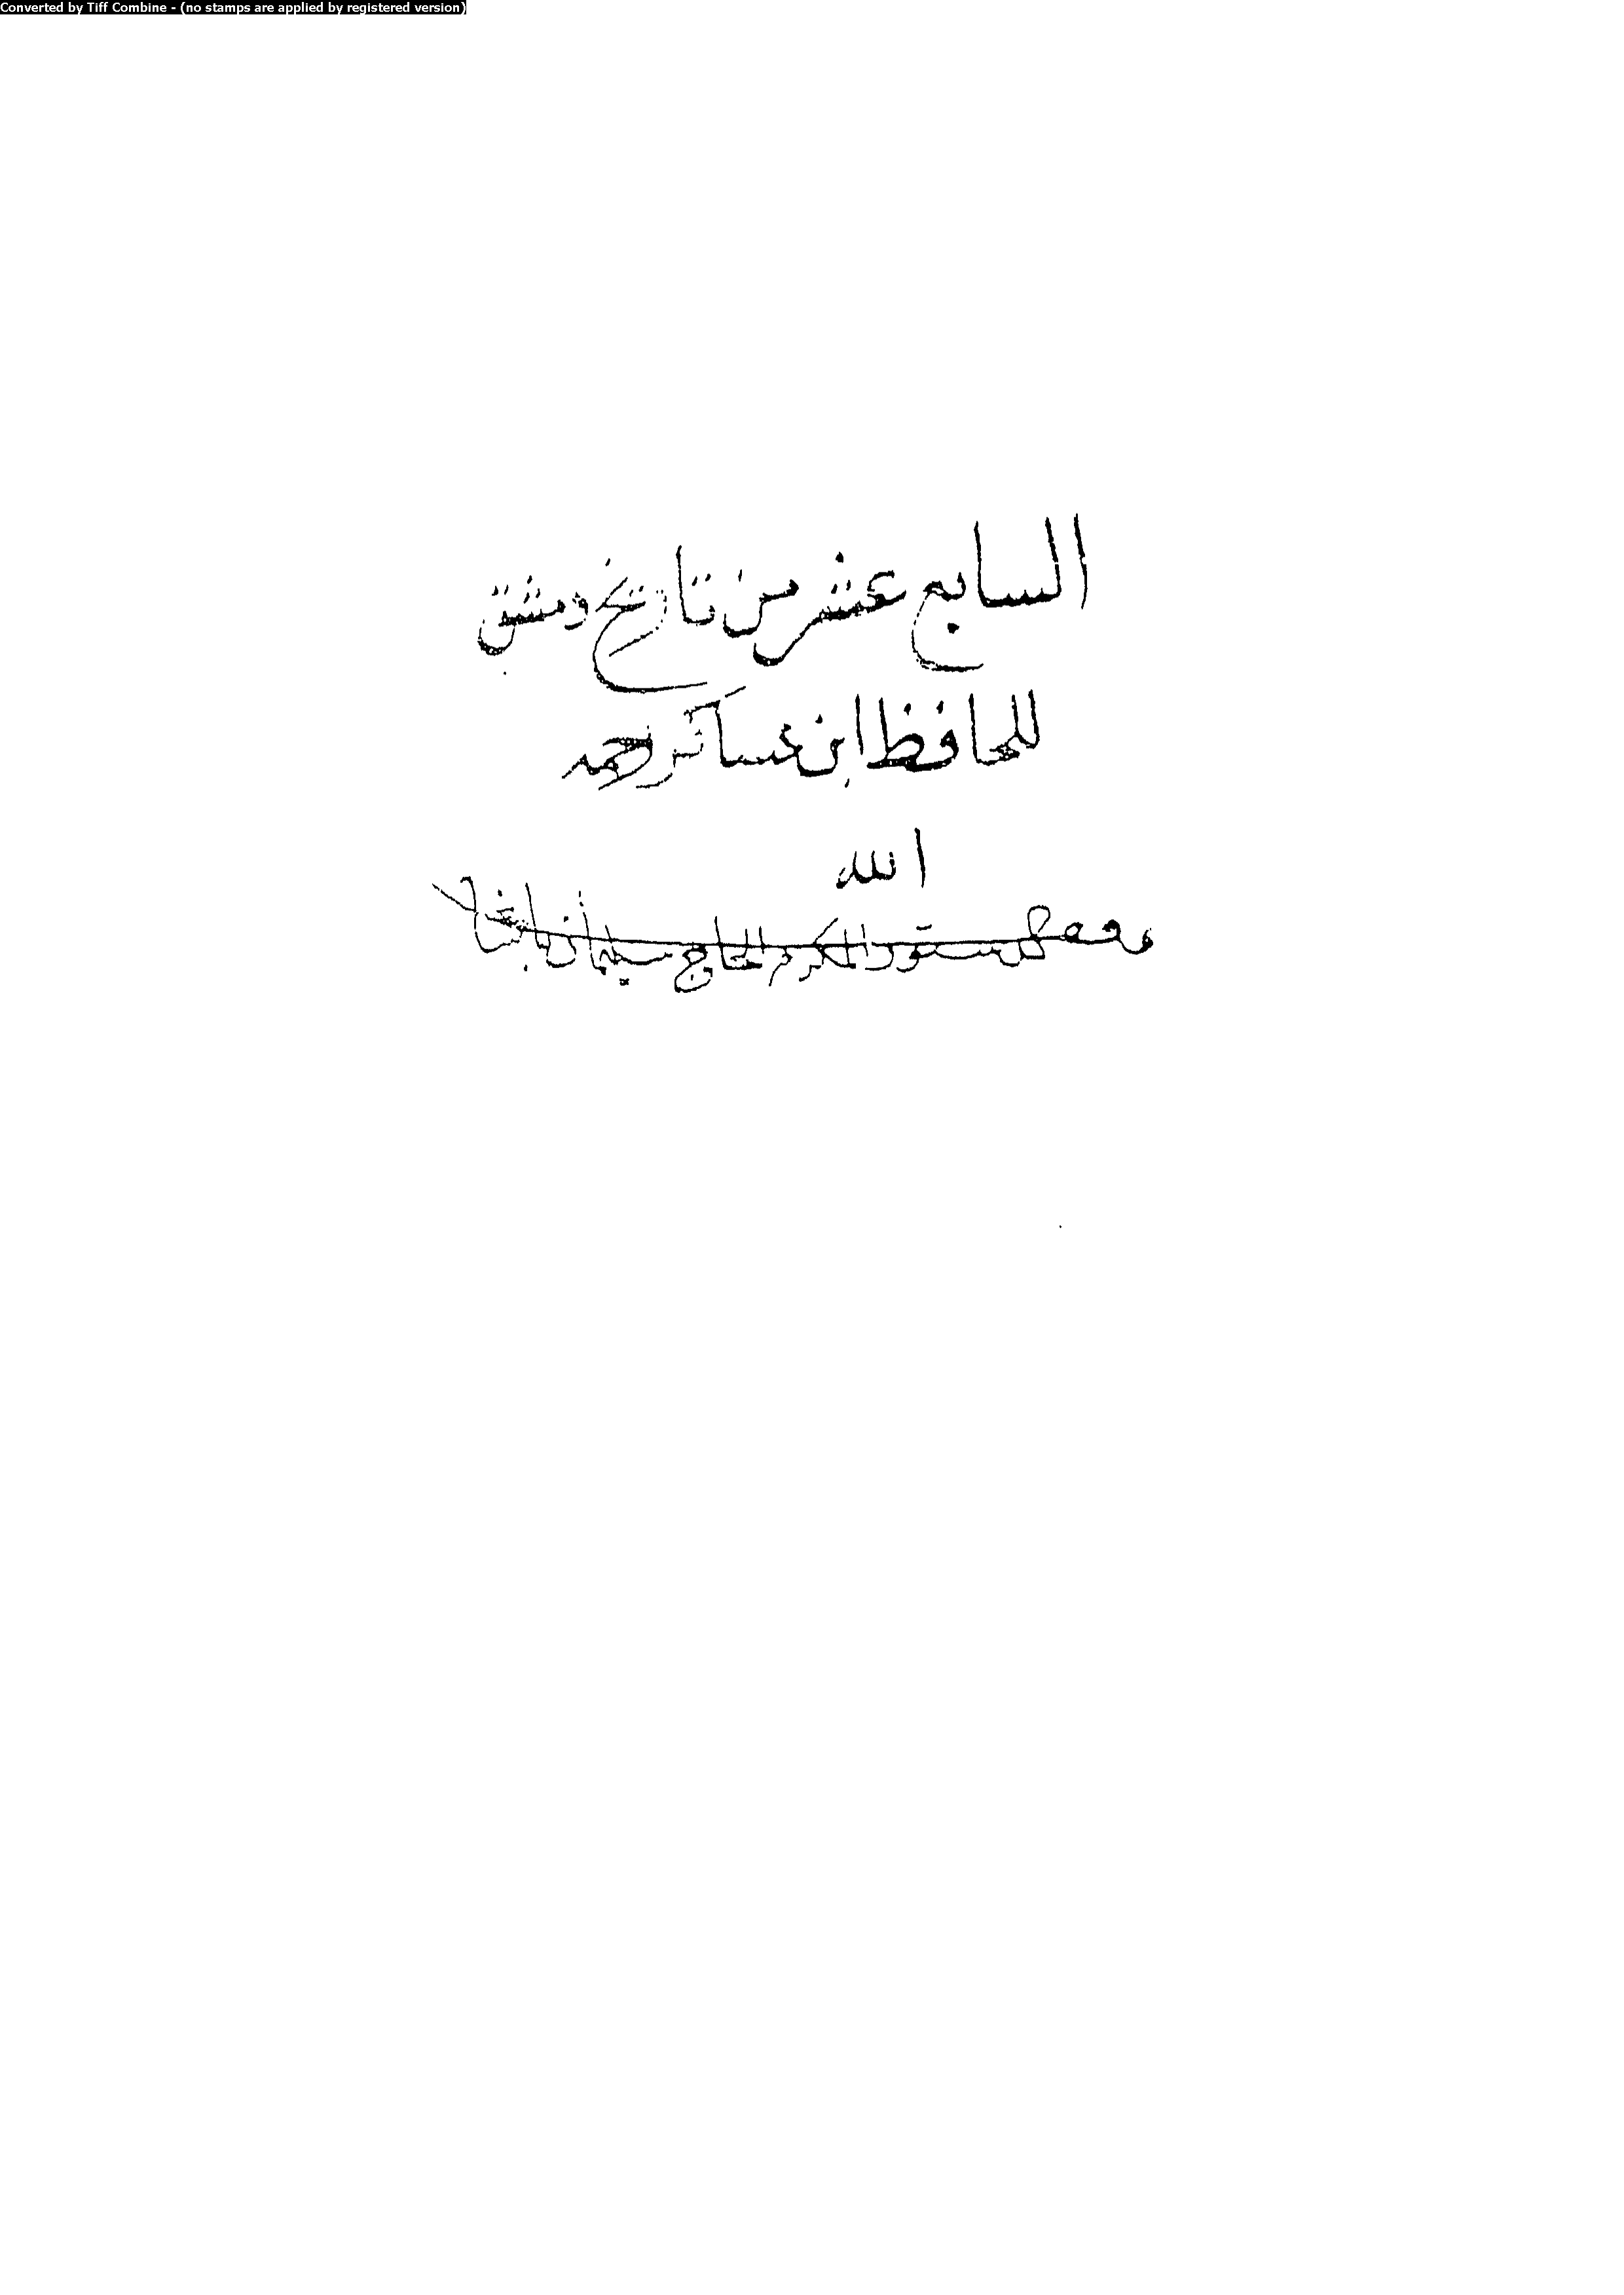 Converted by Tiff Combine - (no stamps are applied by registered version)
السابع عشر من تاريخ دمشق
للحافظ ابن عساكر رحمه
الله
الدستور المكرم الحاج سليمان باشا